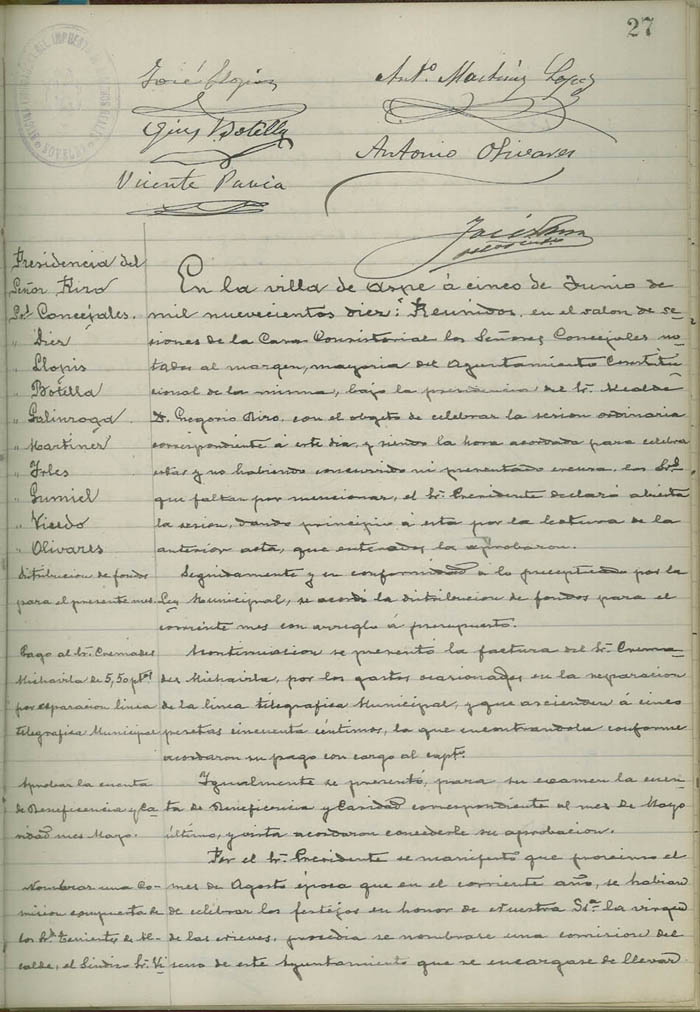 27
José Llopis
Antº Martínez Lopez
Botilla
Antonio Olivares
Vicente Pavia
José
Presidencia del
Señor Rizo
Sres Concejales.
" Dier
" Llopis
" Botilla
" Galinsoga
" Martinez
" Irles
" Gumiel
" Vicedo
" Olivares
En la villa de Aspe á cinco de Junio de
mil nuevecientos diez: Reunidos, en el salon de se-
siones de la Casa Consistorial los Señores Concejales no-
tados al margen, mayoria del Ayuntamiento Constitu-
cional de la misma, bajo la presidencia del Sr. Alcalde
D. Gregorio Rizo, con el objeto de celebrar la sesion ordinaria
correspondiente á este dia, y siendo la hora acordada para celebrar
estas y no habiendo concurrido ni presentado excusa, los Sres
que faltan por mencionar, el Sr. Presidente declaró abierta
la sesion, dando principio á esta por la lectura de la
anterior acta, que enterados la aprobaron.
Distribucion de fondos
para el presente mes
Seguidamente y en conformidad á lo preceptuado por la
Ley Municipal, se acordó la distribucion de fondos para el
corriente mes con arreglo á presupuesto.
Pago al Sr. Cremades
Michavila de 5,50 ptas
por reparacion linea
telegrafica Municipal
Acontinuacion se presentó la factura del Sr. Crema-
des Michavila, por los gastos ocasionados en la reparacion
de la linea telegrafica Municipal, y que ascienden á cinco
pesetas cincuenta céntimos, la que encontrandola conforme
acordaron su pago con cargo al capº.
Aprobar la cuenta
de Beneficencia y Ca-
ridad mes Mayo.
Igualmente se presentó, para su examen la cuen-
ta de Beneficencia y Caridad correspondiente al mes de Mayo
último, y vista acordaron concederle su aprobacion.
Por el Sr. Presidente se manifestó que proximo el
Nombrar una Co-
mision compuesta de
los Sres Tenientes de Al-
calde, el Sindico Sr. Vi
mes de Agosto época que en el corriente año, se habian
de celebrar los festejos en honor de Nuestra Sra la virgen
de las Nieves, procedia se nombrase una comision del
seno de este Ayuntamiento que se encargase de llevar